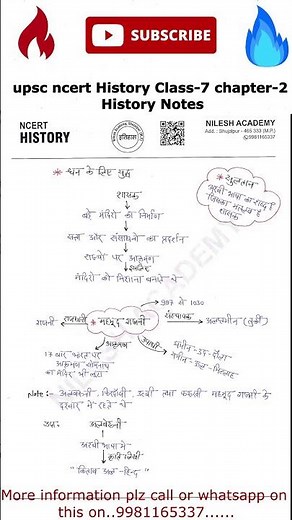 SUBSCRIBE
upsc ncert History Class-7 chapter-2
History Notes
NCERT
HISTORY
इतिहास
NILESH ACADEMY
Add. : Shujalpur - 465 333 (M.P.)
9981165337
* धन के लिए युद्ध
शासक
बड़े मंदिरों का निर्माण
सत्ता और संसाधनों का प्रदर्शन
राज्यों पर आक्रमण
इसलिए
मंदिरों को निशाना बनाते थे
* सुल्तान
अरबी भाषा का शब्द
जिसका मतलब है
शासक
997 से 1030
गजनी
राजधानी
* महमूद गजनी
संस्थापक
अल्पतगीन (तुर्की)
आक्रमण
उपाधि
17 बार भारत पर
आक्रमण सोमनाथ
का मंदिर भी लूटा
यमीन-उद-दौला
यमीन-उल-मिल्लाह
Note:- अलबरूनी, फिरदौसी, उत्बी तथा फरूखी महमूद गजनी के
दरबार में रहते थे
अलबरूनी
अरबी भाषा में
"किताब अल-हिन्द"
More information plz call or whatsapp on
this on..9981165337......